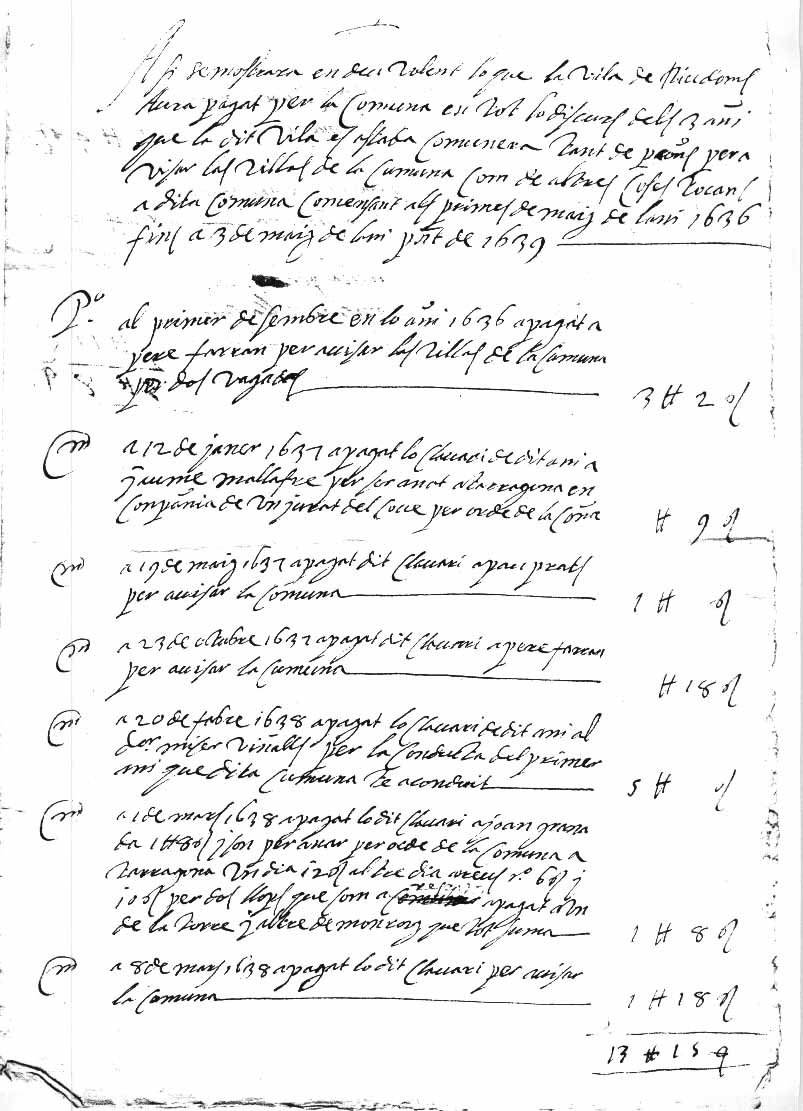 Assi se mostrara en deu valent lo que la vila de Riudoms
haura pagat per la Comuna en tot lo discurs dels 3 añi
que la dit vila es astada Comunera tant de peons per a
visar las villas de la Comuna Com de altres Coses tocans
a dita Comuna Comensant als primes de maig de lani 1636
fins a 3 de maig de lani pñt de 1639
Pº al primer de sembre en lo añi 1636 a pagat a
pere farran per avisar las villas de la Comuna
per dos vagades 3 ⁌ 2 s
m a 12 de janer 1637 a pagat lo Clavari de dit ani a
jaume mallafre per ser anat a tarragona en
Conpañia de un jurat del Cocie per orde de la Coña ⁌ 9 s
m a 19 de maig 1637 a pagat dit Clavari a pau prats
per avisar la Comuna 1 ⁌ s
m a 23 de octubre 1637 a pagat dit Clavari a pere farran
per avisar la Cumuna ⁌ 18 s
m a 20 de fabre 1638 a pagat lo Clavari de dit ani al
dor miser viñalls per la Conducta del primer
ani que dita Cumuna te aconduit 5 ⁌ s
m a 1 de mars 1638 a pagat lo dit Clavari a joan grana
da 1 ⁌ 8 s y son per anar per orde de la Comuna a
tarragona un dia 12 s altre dia a reus rº 6 s y
10 s per dos llops que som a pagat a un
de la torre y altre de monroig que tot suma 1 ⁌ 8 s
m a 8 de mars 1638 a pagat lo dit Clavari per avisar
la Comuna 1 ⁌ 18 s
13 ⁌ 15 9